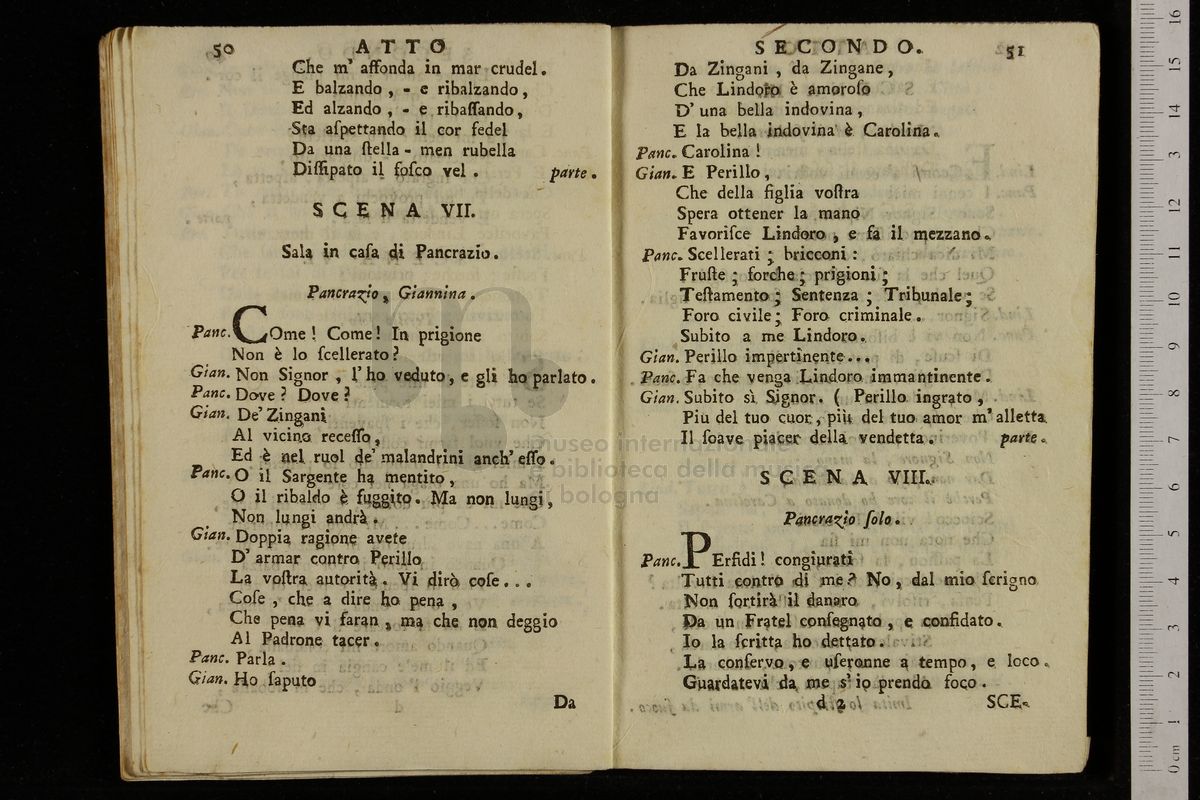 50 ATTO
Che m' affonda in mar crudel.
E balzando, - e ribalzando,
Ed alzando, - e ribaſſando,
Sta aſpettando il cor fedel
Da una ſtella - men rubella
Diſſipato il foſco vel. parte.
SCENA VII.
Sala in caſa di Pancrazio.
Pancrazio, Giannina.
Panc. COme! Come! In prigione
Non è lo ſcellerato?
Gian. Non Signor, l'ho veduto, e gli ho parlato.
Panc. Dove? Dove?
Gian. De' Zingani
Al vicino receſſo,
Ed è nel ruol de' malandrini anch' eſſo.
Panc. O il Sargente ha mentito,
O il ribaldo è fuggito. Ma non lungi,
Non lungi andrà.
Gian. Doppia ragione avete
D' armar contro Perillo
La voſtra autorità. Vi dirò coſe...
Coſe, che a dire ho pena,
Che pena vi faran, ma che non deggio
Al Padrone tacer.
Panc. Parla.
Gian. Ho ſaputo
Da
SECONDO. 51
Da Zingani, da Zingane,
Che Lindoro è amoroſo
D' una bella indovina,
E la bella indovina è Carolina.
Panc. Carolina!
Gian. E Perillo,
Che della figlia voſtra
Spera ottener la mano
Favoriſce Lindoro, e fa il mezzano.
Panc. Scellerati; bricconi:
Fruſte; forche; prigioni;
Teſtamento; Sentenza; Tribunale;
Foro civile; Foro criminale.
Subito a me Lindoro.
Gian. Perillo impertinente...
Panc. Fa che venga Lindoro immantinente.
Gian. Subito sì Signor. (Perillo ingrato,
Piu del tuo cuor, più del tuo amor m' alletta
Il ſoave piacer della vendetta. parte.
SCENA VIII.
Pancrazio ſolo.
Panc. PErfidi! congiurati
Tutti contro di me? No, dal mio ſcrigno
Non ſortirà il danaro
Da un Fratel conſegnato, e confidato.
Io la ſcritta ho dettato.
La conſervo, e uſeronne a tempo, e loco.
Guardatevi da me s' io prendo foco.
d 2 SCE-
museo internazionale
e biblioteca della musica
di bologna